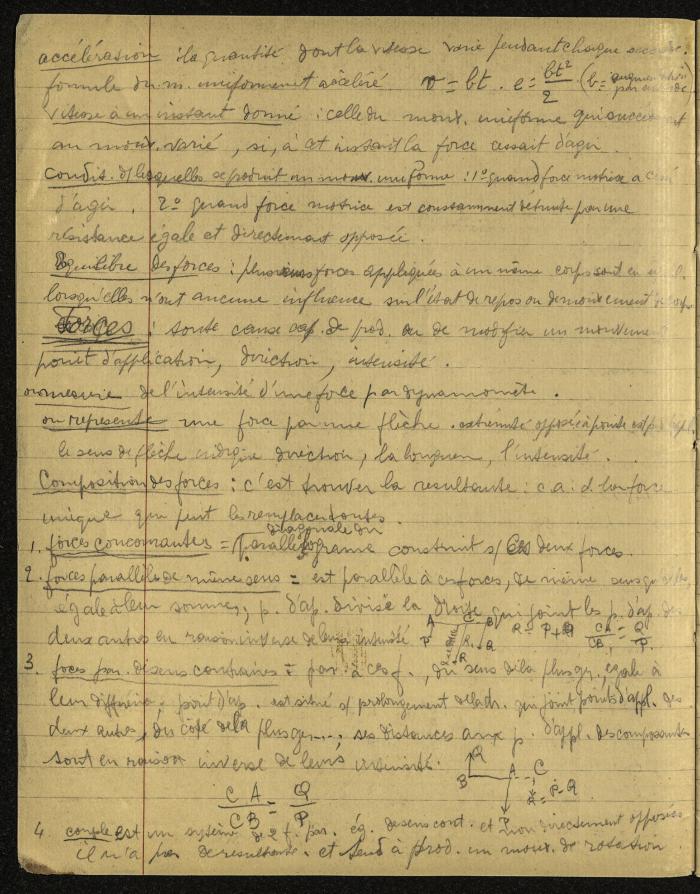 accélération : la quantité dont la vitesse varie pendant chaque seconde :
formule du m. uniformément accéléré v = bt . e = bt²/2 (b = augmentation par seconde
vitesse à un instant donné : celle du mouv. uniforme qui succèderait
au mouv. varié, si, à cet instant la force cessait d'agir.
Condit. ds lesquelles se produit un mouv. uniforme : 1° quand force motrice a cessé
d'agir. 2° quand force motrice est constamment détruite par une
résistance égale et directement opposée.
Equilibre des forces : plusieurs forces appliquées à un même corps sont en
lorsqu'elles n'ont aucune influence sur l'état de repos ou de mouvement
Forces : toute cause cap. de prod. ou de modifier un mouvement
point d'application, direction, intensité.
on mesure de l'intensité d'une force par dynamomètre.
on représente une force par une flèche . extrémité opposée à pointe est
le sens de flèche indique direction, la longueur, l'intensité.
Composition des forces : c'est trouver la résultante : c.à.d. la force
unique qui peut les remplacer toutes.
diagonale du
1. forces concourantes = parallélogramme construit s/ ces deux forces.
2. forces parallèles de même sens = est parallèle à ces forces, de même sens
égale à leur somme, p. d'ap. divise la droite qui joint les p. d'ap. des
deux autres en raison inverse de leurs intensité A C B P Q R R = P + Q CA/CB = Q/P
3. forces par. de sens contraires = par. à ces f., du sens de la plus gr., égale à
leur différence, point d'ap. est situé s/ prolongement de la dr. qui joint points d'appl. des
deux autres, du côté de la plus gr..., ses distances aux p. d'appl. des composantes
sont en raison inverse de leurs intensité. B Q A C P R = P - Q
CA/CB = Q/P
4. couple est un système de 2 f. par. ég. de sens cont. et non directement opposées
il n'a pas de résultante. et tend à prod. un mouv. de rotation